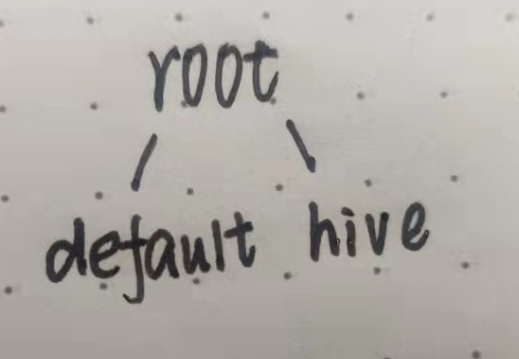 root
default hive